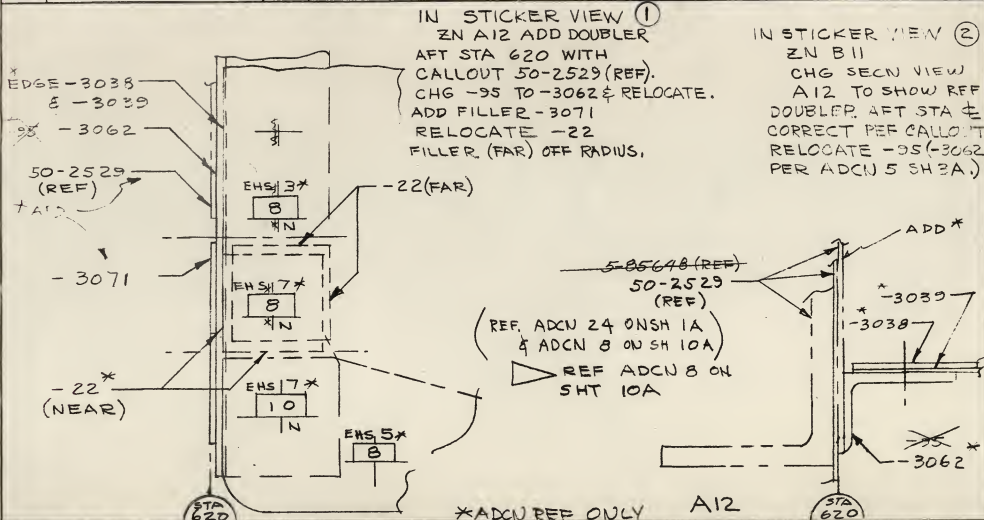 IN STICKER VIEW 1
ZN A12 ADD DOUBLER
AFT STA 620 WITH
CALLOUT 50-2529 (REF).
CHG -95 TO -3062 & RELOCATE.
ADD FILLER -3071
RELOCATE -22
FILLER (FAR) OFF RADIUS.
IN STICKER VIEW 2
ZN B11
CHG SECN VIEW
A12 TO SHOW REF
DOUBLER AFT STA &
CORRECT REF CALLOUT
RELOCATE -95 (-3062
PER ADCN 5 SH 3A.)
*EDGE -3038
& -3039
95 -3062
50-2529
(REF)
-3071
-22*
(NEAR)
-22 (FAR)
EHS 3*
8
*N
EHS 7*
8
*N
EHS 7*
10
N
EHS 5*
8
STA
620
*ADCN REF ONLY
5-85648 (REF)
50-2529
(REF)
(REF. ADCN 24 ON SH 1A
& ADCN 8 ON SH 10A)
REF ADCN 8 ON
SHT 10A
ADD*
*-3039
*-3038
-95
-3062*
A12
STA
620